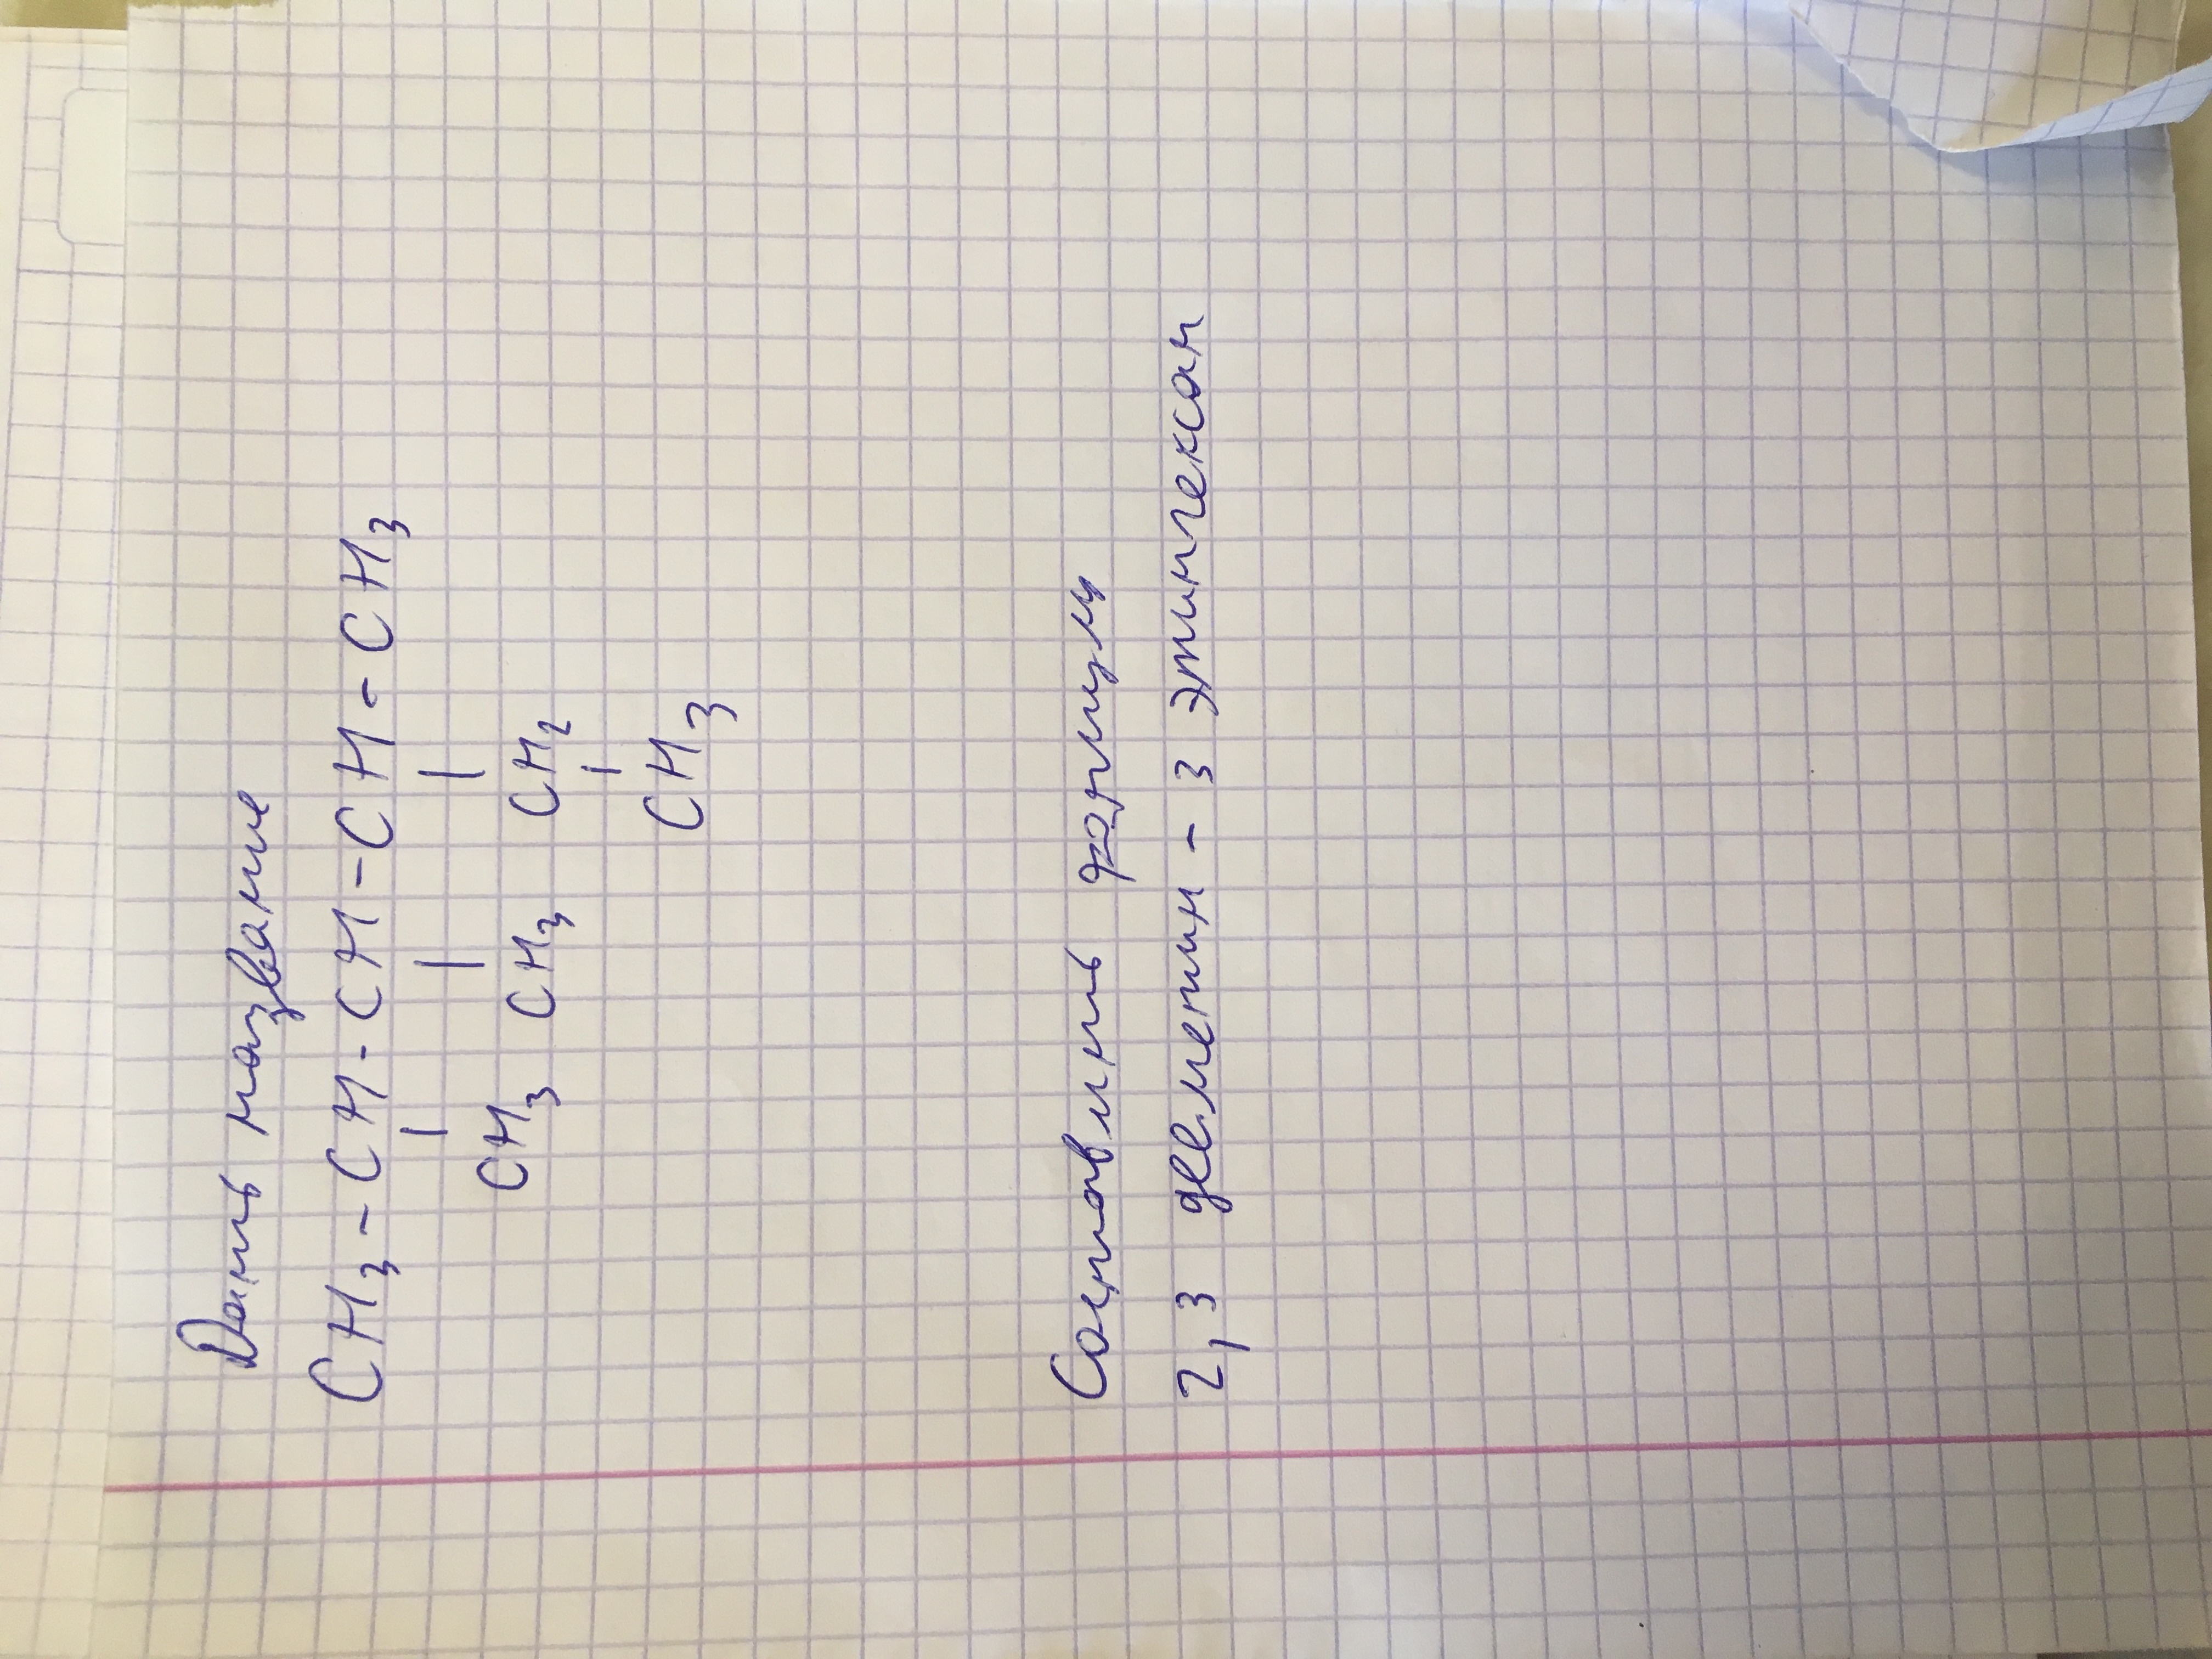 Дать название
CH3-CH-CH-CH-CH3
CH3 CH3 CH2
CH3
Составить формулу
2,3 диметил - 3 этилгексан